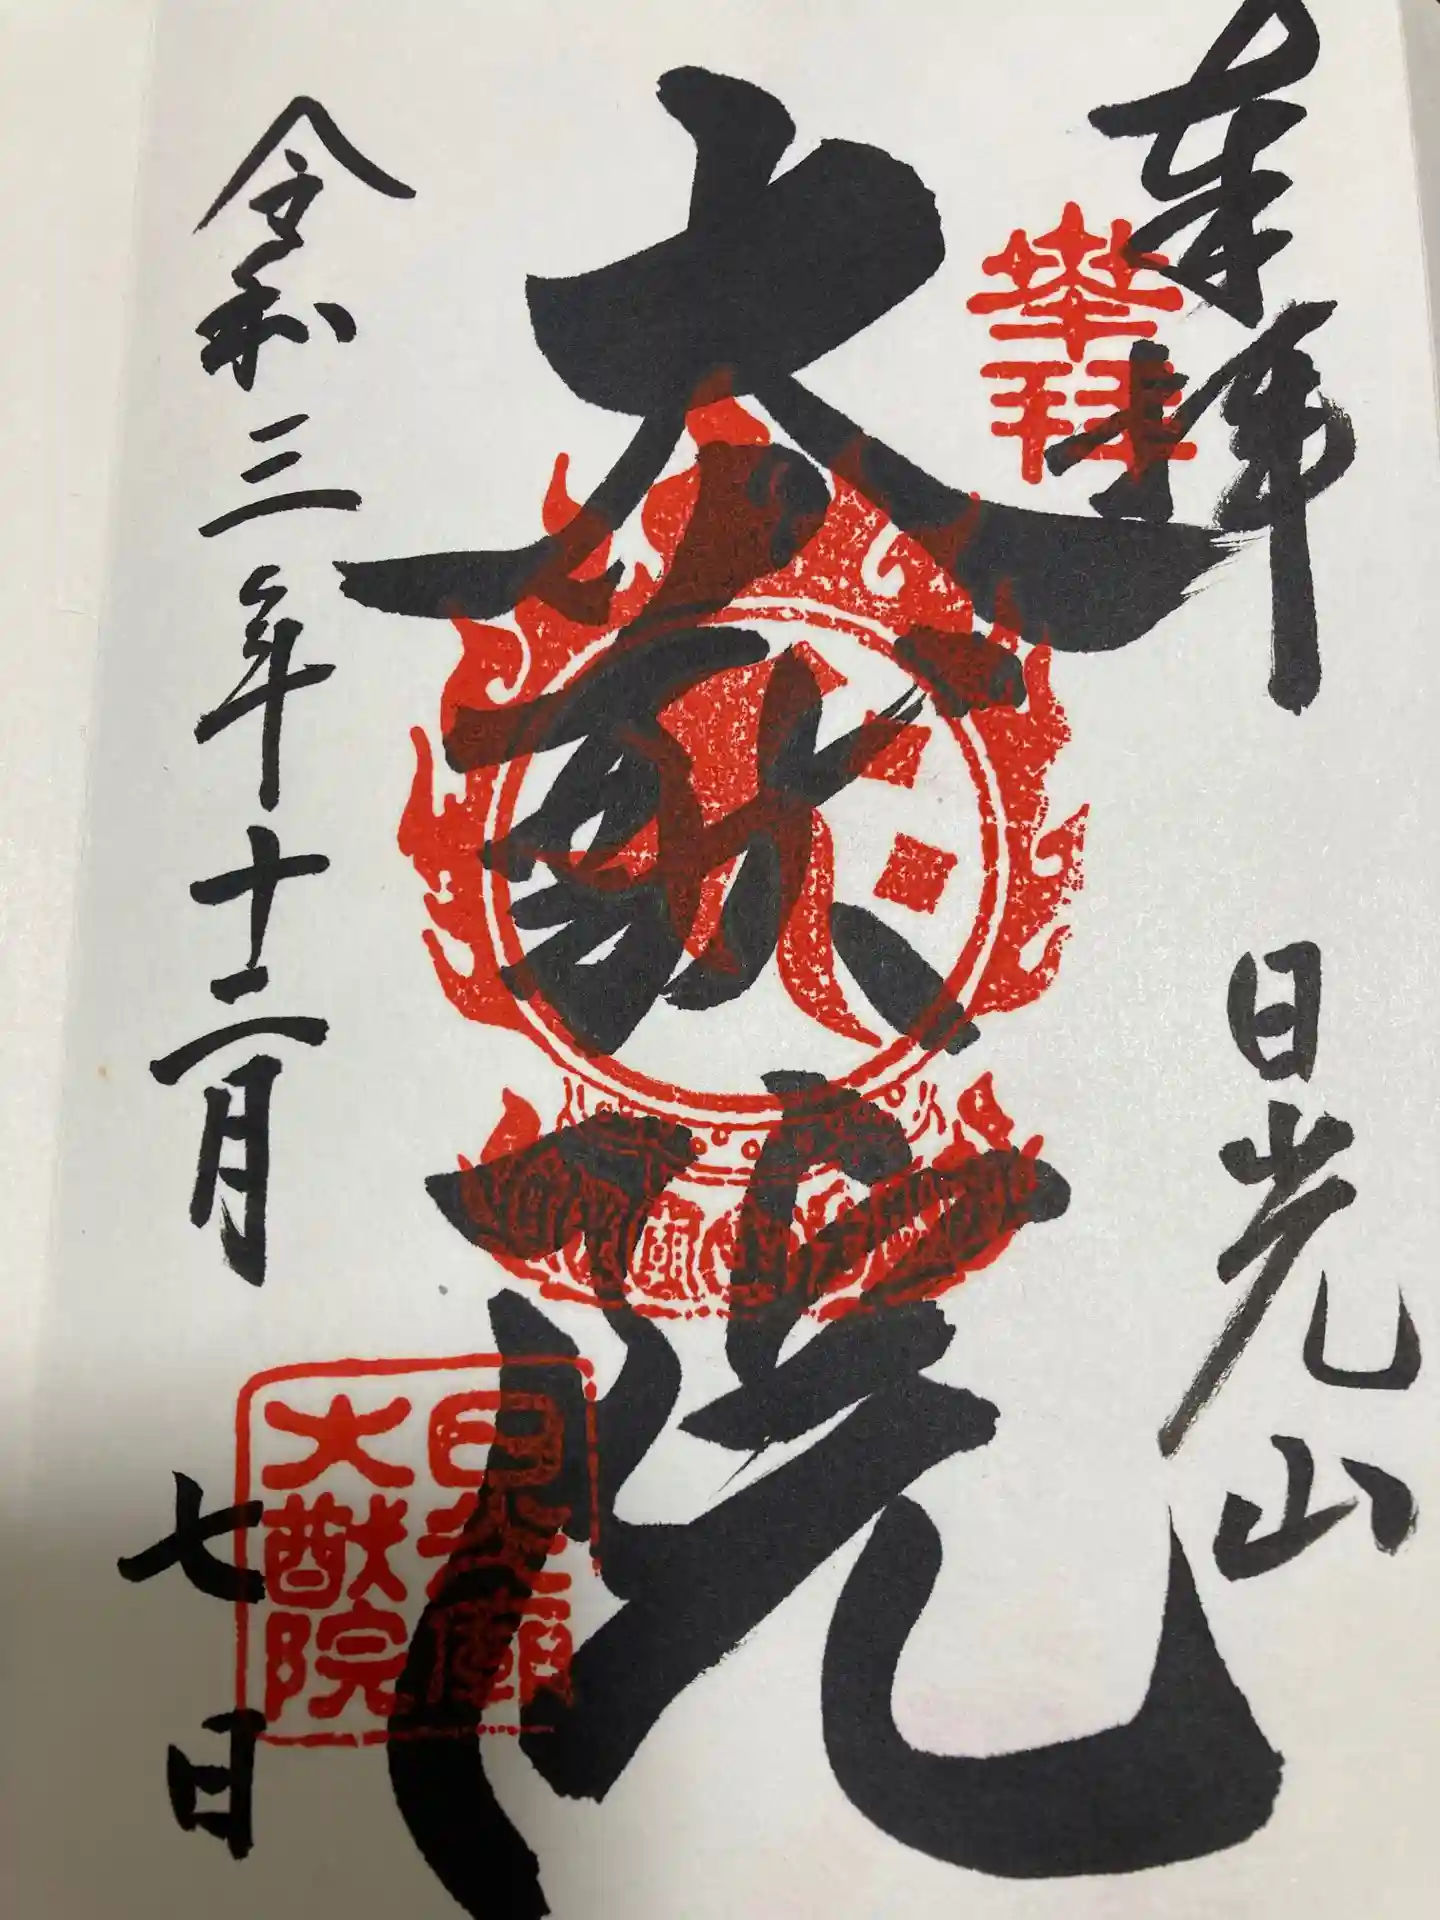 奉拝
日光山
奉拝
大猷院
令和三年十二月
七日
日光廟
大猷院